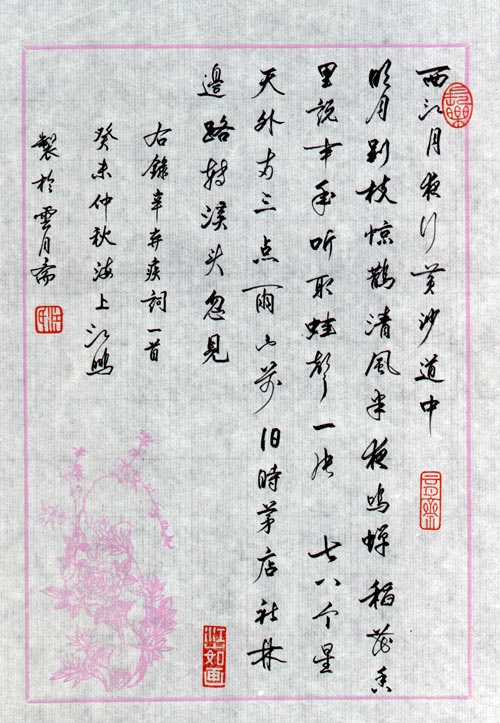 西江月夜行黄沙道中
明月别枝惊鹊清风半夜鸣蝉稻花香
里説丰年听取蛙聲一片 七八个星
天外两三点雨山前旧時茅店社林
邊路转溪头忽見
右錄辛弃疾詞一首
癸未仲秋海上江
製於雲月斋
長樂
江如画